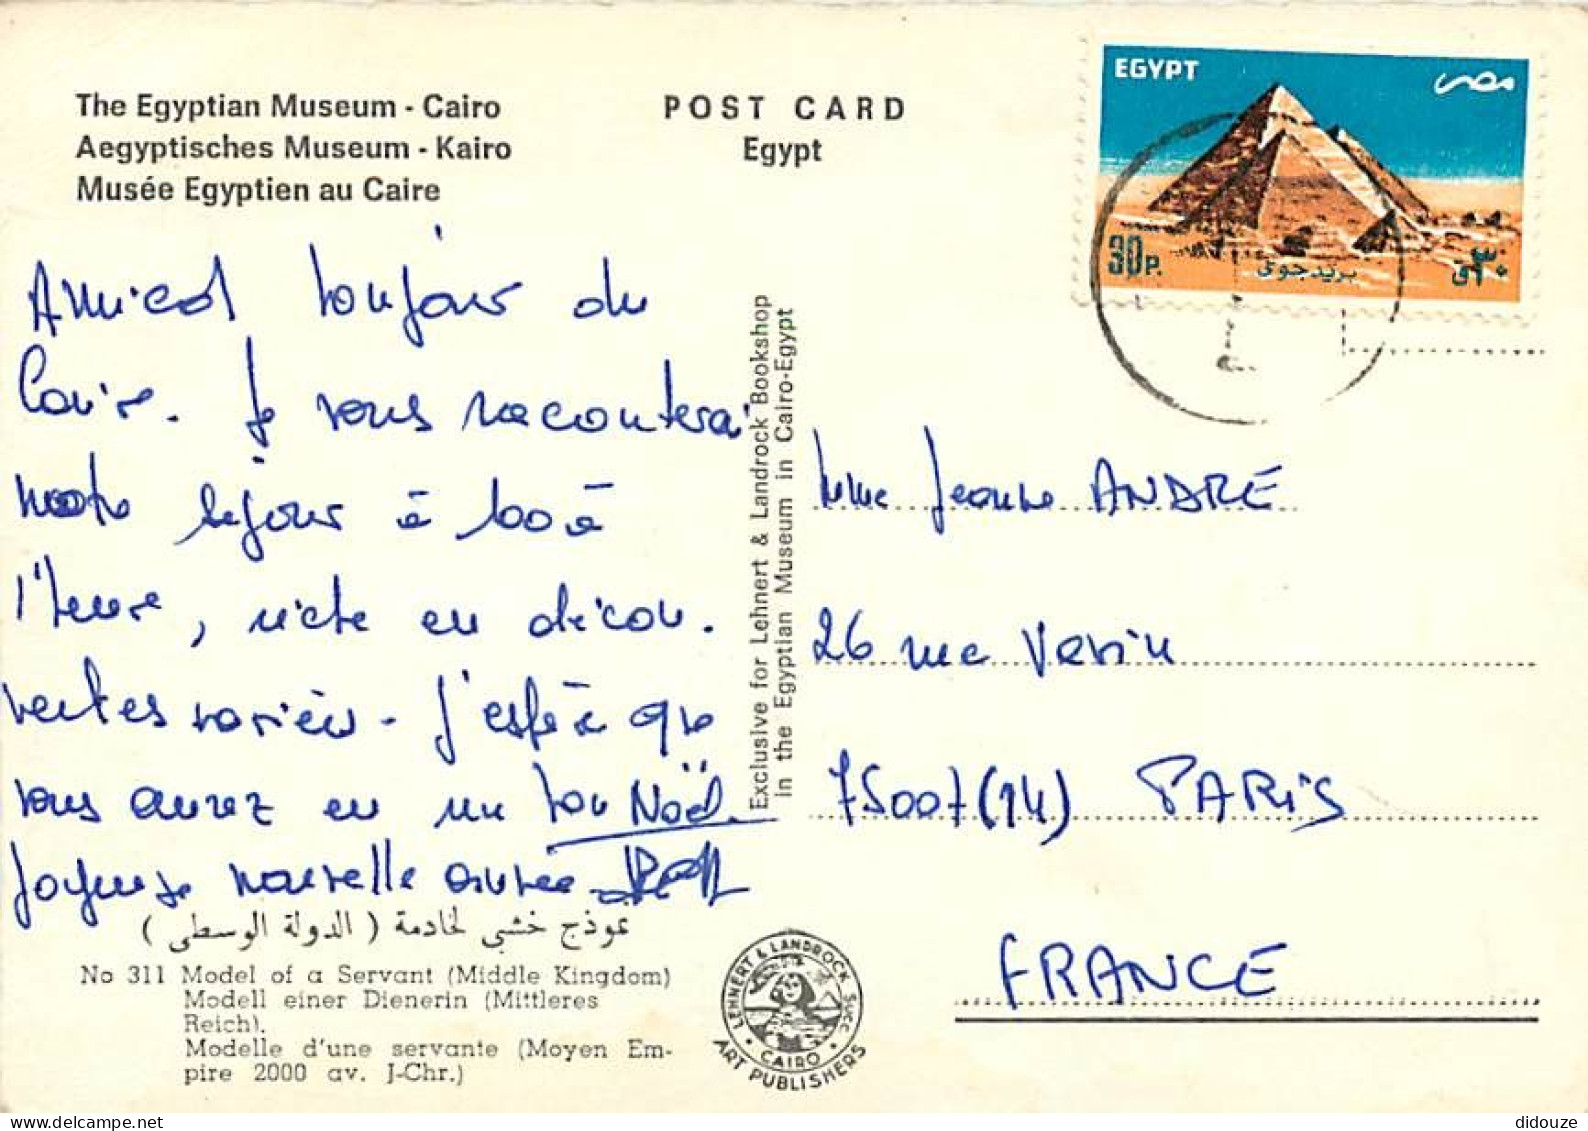 The Egyptian Museum - Cairo
Aegyptisches Museum - Kairo
Musée Egyptien au Caire
POST CARD
Egypt
EGYPT
مصر
30P.
بريد جوى
٣٠ ق
Amical toujour du
Caire. Je vous raconterai
séjour à 100 à
l'heure, riche en décou.
vertes variées - J'espère que
vous aurez eu un bon Noël.
Joyeuse nouvelle année
Exclusive for Lehnert & Landrock Bookshop
in the Egyptian Museum in Cairo-Egypt
Mme Jeanne ANDRE
26 rue Varin
75007 (14) PARIS
FRANCE
نموذج خشبي لخادمة ( الدولة الوسطى )
No 311 Model of a Servant (Middle Kingdom)
Modell einer Dienerin (Mittleres
Reich).
Modelle d'une servante (Moyen Em-
pire 2000 av. J-Chr.)
LEHNERT & LANDROCK SUCC.
CAIRO
ART PUBLISHERS
didouze